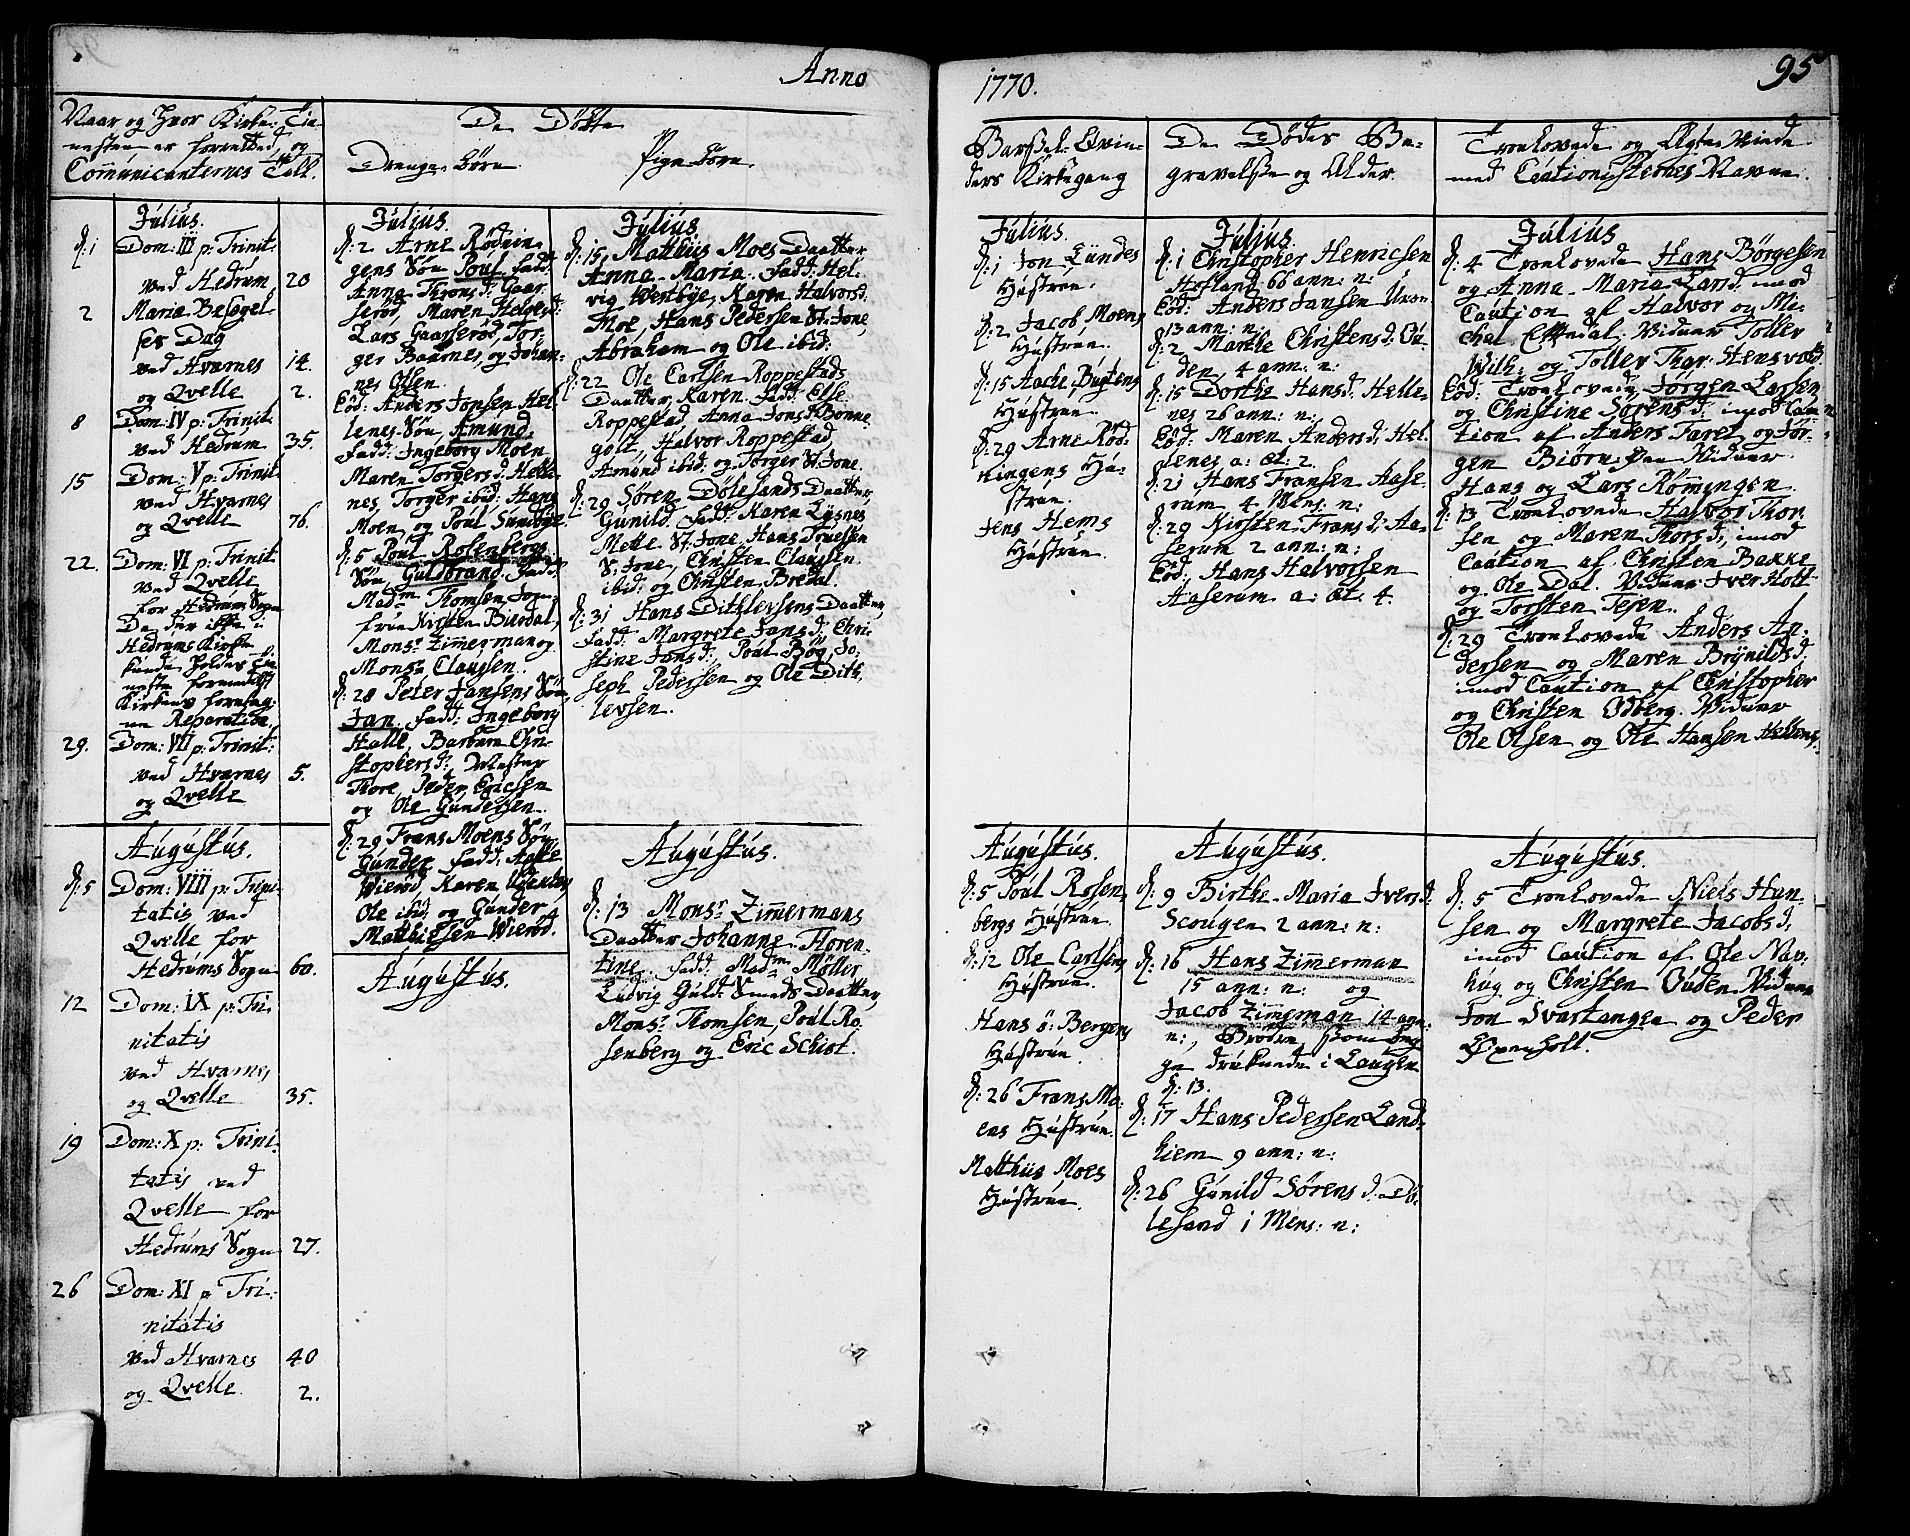 Anno
Naar og hvor Kirke-Tie-
nesten er forretted, og
Communicanternes Tall.
De Døbte
Drenge Børn.
Pige Børn.
Julius.
d: 1 Dom: III p: Trinit
ved Hedrum 20
2 Maria Besøgel-
ses Dag
ved Hvarnes 14.
og Qvelle 2.
8 Dom: IV p: Trinit
ved Hedrum 35.
15 Dom: V p: Trinit
ved Hvarnes
og Qvelle 76.
22. Dom: VI p: Trinit
ved Qvelle
for Hedrum Sogn
Da der ikke i
Hedrums Kirke
kunde holdes Tie-
neste formedelst
Kirkens
Reparation.
29. Dom: VII p: Trinit:
ved Hvarnes 5.
og Qvelle
Augustus.
d: 5 Dom: VIII p: Trini-
tatis ved
Qvelle for
Hedrums Sogn 60.
12 Dom: IX p: Tri-
nitatis
ved Hvarnes
og Qvelle 35.
19 Dom: X p: Trini-
tatis ved
Qvelle for
Hedrums Sogn 27.
26 Dom: XI p Tri-
nitatis
ved Hvarnes 40
og Qvelle 2.
Julius.
d: 2 Arne Rødnin-
gens Søn Poul. Fadd:
Anna Throns d: Gaar-
serød, Maren Helges d:
Lars Gaarserød, Tor-
ger Baarnes, og Johan-
nes Olsen.
Eod: Anders Jonsen Hel-
lenes Søn Amund.
Fadd: Ingeborg Moen
Maren Torgers d: Helle-
nes, Torger ibid: Hans
Moen og Poul Sundbye.
d: 5 Poul Rosenbergs
Søn, Guldbrand. Fadd:
Madm Thomsen, Jom-
frue Kirsten Bierdal,
Monsr Zimmerman og
Monsr Clausen.
d: 28 Peter Jansens Søn,
Jan. Fadd: Ingeborg
Halle, Barbara Chri-
stophers d: Mester
Thore, Peder Ericsen
og Ole Gundersen.
d: 29 Frans Moens Søn
Gunder. Fadd: Aaste
Wierød, Karen
Ole ibid, og Gunder
Matthiesen Wierød.
Augustus.
Julius
d: 15, Matthiis Moes Daatter
Anna-Maria. Fadd: Hel-
vig Westbye, Karen Halvorsd.
Moe, Hans Pedersen St: Jone,
Abraham og Ole ibid:
d: 22 Ole Carlsen Roppestads
Daatter, Karen. Fadd: Else
Roppestad, Anna Jons d: Bonne-
golt, Halvor Roppestad,
Amund ibid: og Torger St: Jone.
d: 29 Søren Dølesands Daatter
Gunild. Fadd: Karen Lysnes
Mette St: Jone, Hans Truelsen
St: Jone, Christen Clausen
ibid: og Christen Bredal.
d: 31 Hans Dithlevsens Daatter,
Fadd: Margrete Jans d: Chri-
stine Jansd: Poul Bøg, Jo-
seph Pedersen og Ole Dith-
levsen.
Augustus.
d: 13 Monsr. Zimmermans
Daatter Johanne-Floren-
tine. Fadd: Madm Møller
Ludvig Guld-Smeds Daatter,
Monsr. Thomsen, Poul Ro-
senberg og Eric Schiot.
1770.
95
Barsel-Qvin-
ders Kirkegang
De Dødes Be-
gravelse og Alder.
Troelovede og Ægte-Viede
med Cautionisternes Navne.
Julius.
d: 1 Jon Lundes
Hustrue.
d: 2. Jacob Moens
Hustrue.
d: 15 Aache Bugtens
Hustrue.
d: 29 Arne Rød-
ningens Hu-
strue.
Jens Hems
Hustrue.
Augustus.
d: 5 Poul Rosen-
bergs Hustrue.
d: 12 Ole Carlsens
Hustrue.
Hans ø: Bergens
Hustrue.
d: 26 Frans Mo-
ens Hustrue.
Matthiis Moes
Hustrue.
Julius.
d: 1 Christopher Henricsen
Hofland 66 ann: n:
Eod: Anders Jansen
13 ann: n:
d: 2 Marthe Christens d: Ou-
den, 4 ann: n:
d: 15 Dorthe Hans d: Helle-
nes 26 ann: n:
Eod: Maren Anders d: Hel-
lenes a: æt: 2.
d: 21 Hans Fransen Aase-
rum 4 Mens: n:
d: 29 Kirsten Frans d: Aa-
serum 2 ann: n:
Eod: Hans Halvorsen
Aaserum a: æt: 4.
Augustus.
d: 9 Birthe-Maria Ivers d:
Scougen 2 ann: n:
d: 16 Hans Zimmerman
15 ann: n: og
Jacob Zimmerman 14 ann:
n:, Brødre, som beg-
ge druknede i Laugen
d: 13.
d: 17 Hans Pedersen Land-
hiem 9 ann: n:
d: 26 Gunild Sørens d: Dø-
lesand 1 Mens: n:
Julius
d: 4 Troelovede Hans Børgesen
og Anna-Maria Lars d: imod
Caution af Halvor og Mi-
chel Ellendal. Viduer Toller
With: og Toller Thgr. Hemsvold.
Eod: Troelovede, Jørgen Larsen
og Christine Sørens d: imod Cau-
tion af Anders Farer og Jør-
gen Biørn: Øen Viduer
Hans og Lars Rømingen.
d: 13 Troelovede Halvor Thor-
sen og Maren Thors d: imod
Caution af Christen Bakke
og Ole Dal. Viduer Iver Holt
og Torsten Tejen.
d: 29 Troelovede Anders An-
dersen og Maren Brynilds d:
imod Caution af Christopher
og Christen Odberg. Viduer
Ole Olsen og Ole Hansen Hellenes.
Augustus.
d: 5 Troelovede Niels Han-
sen og Margrete Jacobs d:
imod Caution af Ole Nav-
hug og Christen Ouden. Viduer
Jon Svartangen og Peder
Øxenholt.